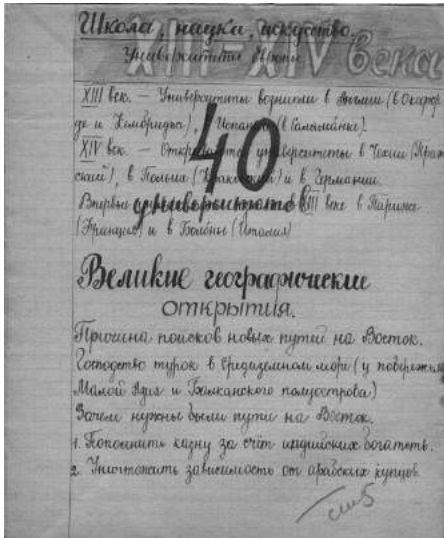 Школа, наука, искусство.
Университеты
XIII–XIV века
XIII век. – Университеты возникли в Англии (в Оксфор-
де и Кембридже), Испании (в Саламанке).
40
XIV век. – университеты в Чехии (Праж-
ский), в Польше (Краковский) и в Германии.
университетов
Впервые в XIII веке в Париже
(Франция) и в Болоньи (Италия)
Великие географические
открытия.
Причина поисков новых путей на Восток.
Господство турок в Средиземном море (у побережья
Малой Азии и Балканского полуострова)
Зачем нужны были пути на Восток.
1. Пополнить казну за счёт индийских богатств.
2. Уничтожить зависимость от арабских купцов